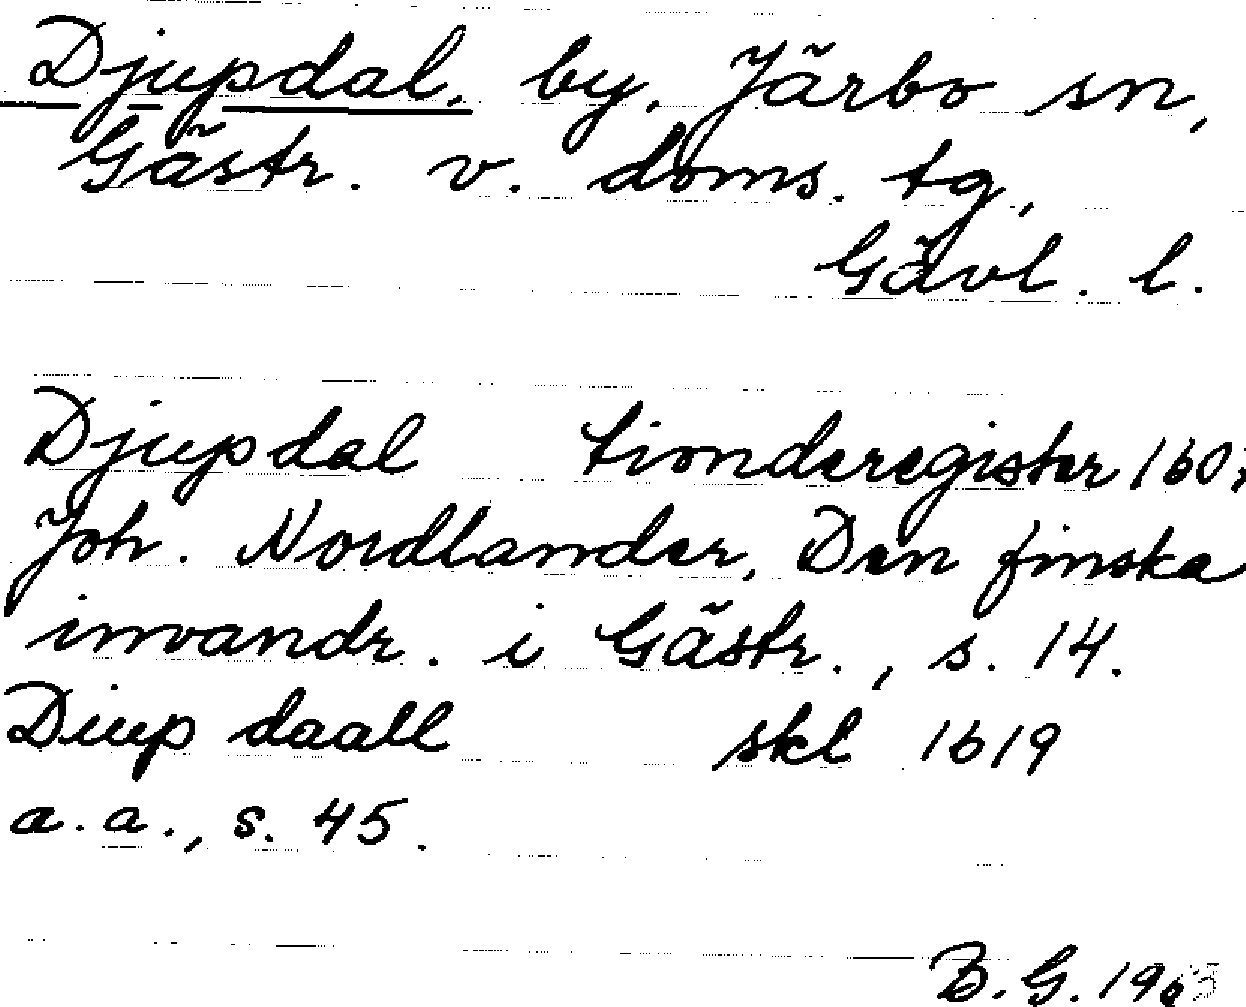 Djupdal, by, Järbo sn,
Gästr. v. doms. tg,
Gävl. l.
Djupdal tionderegister
Joh. Nordlander, Den finska
invandr. i Gästr., s. 14.
Diup daall skl 1619
a.a., s. 45.
B.G.